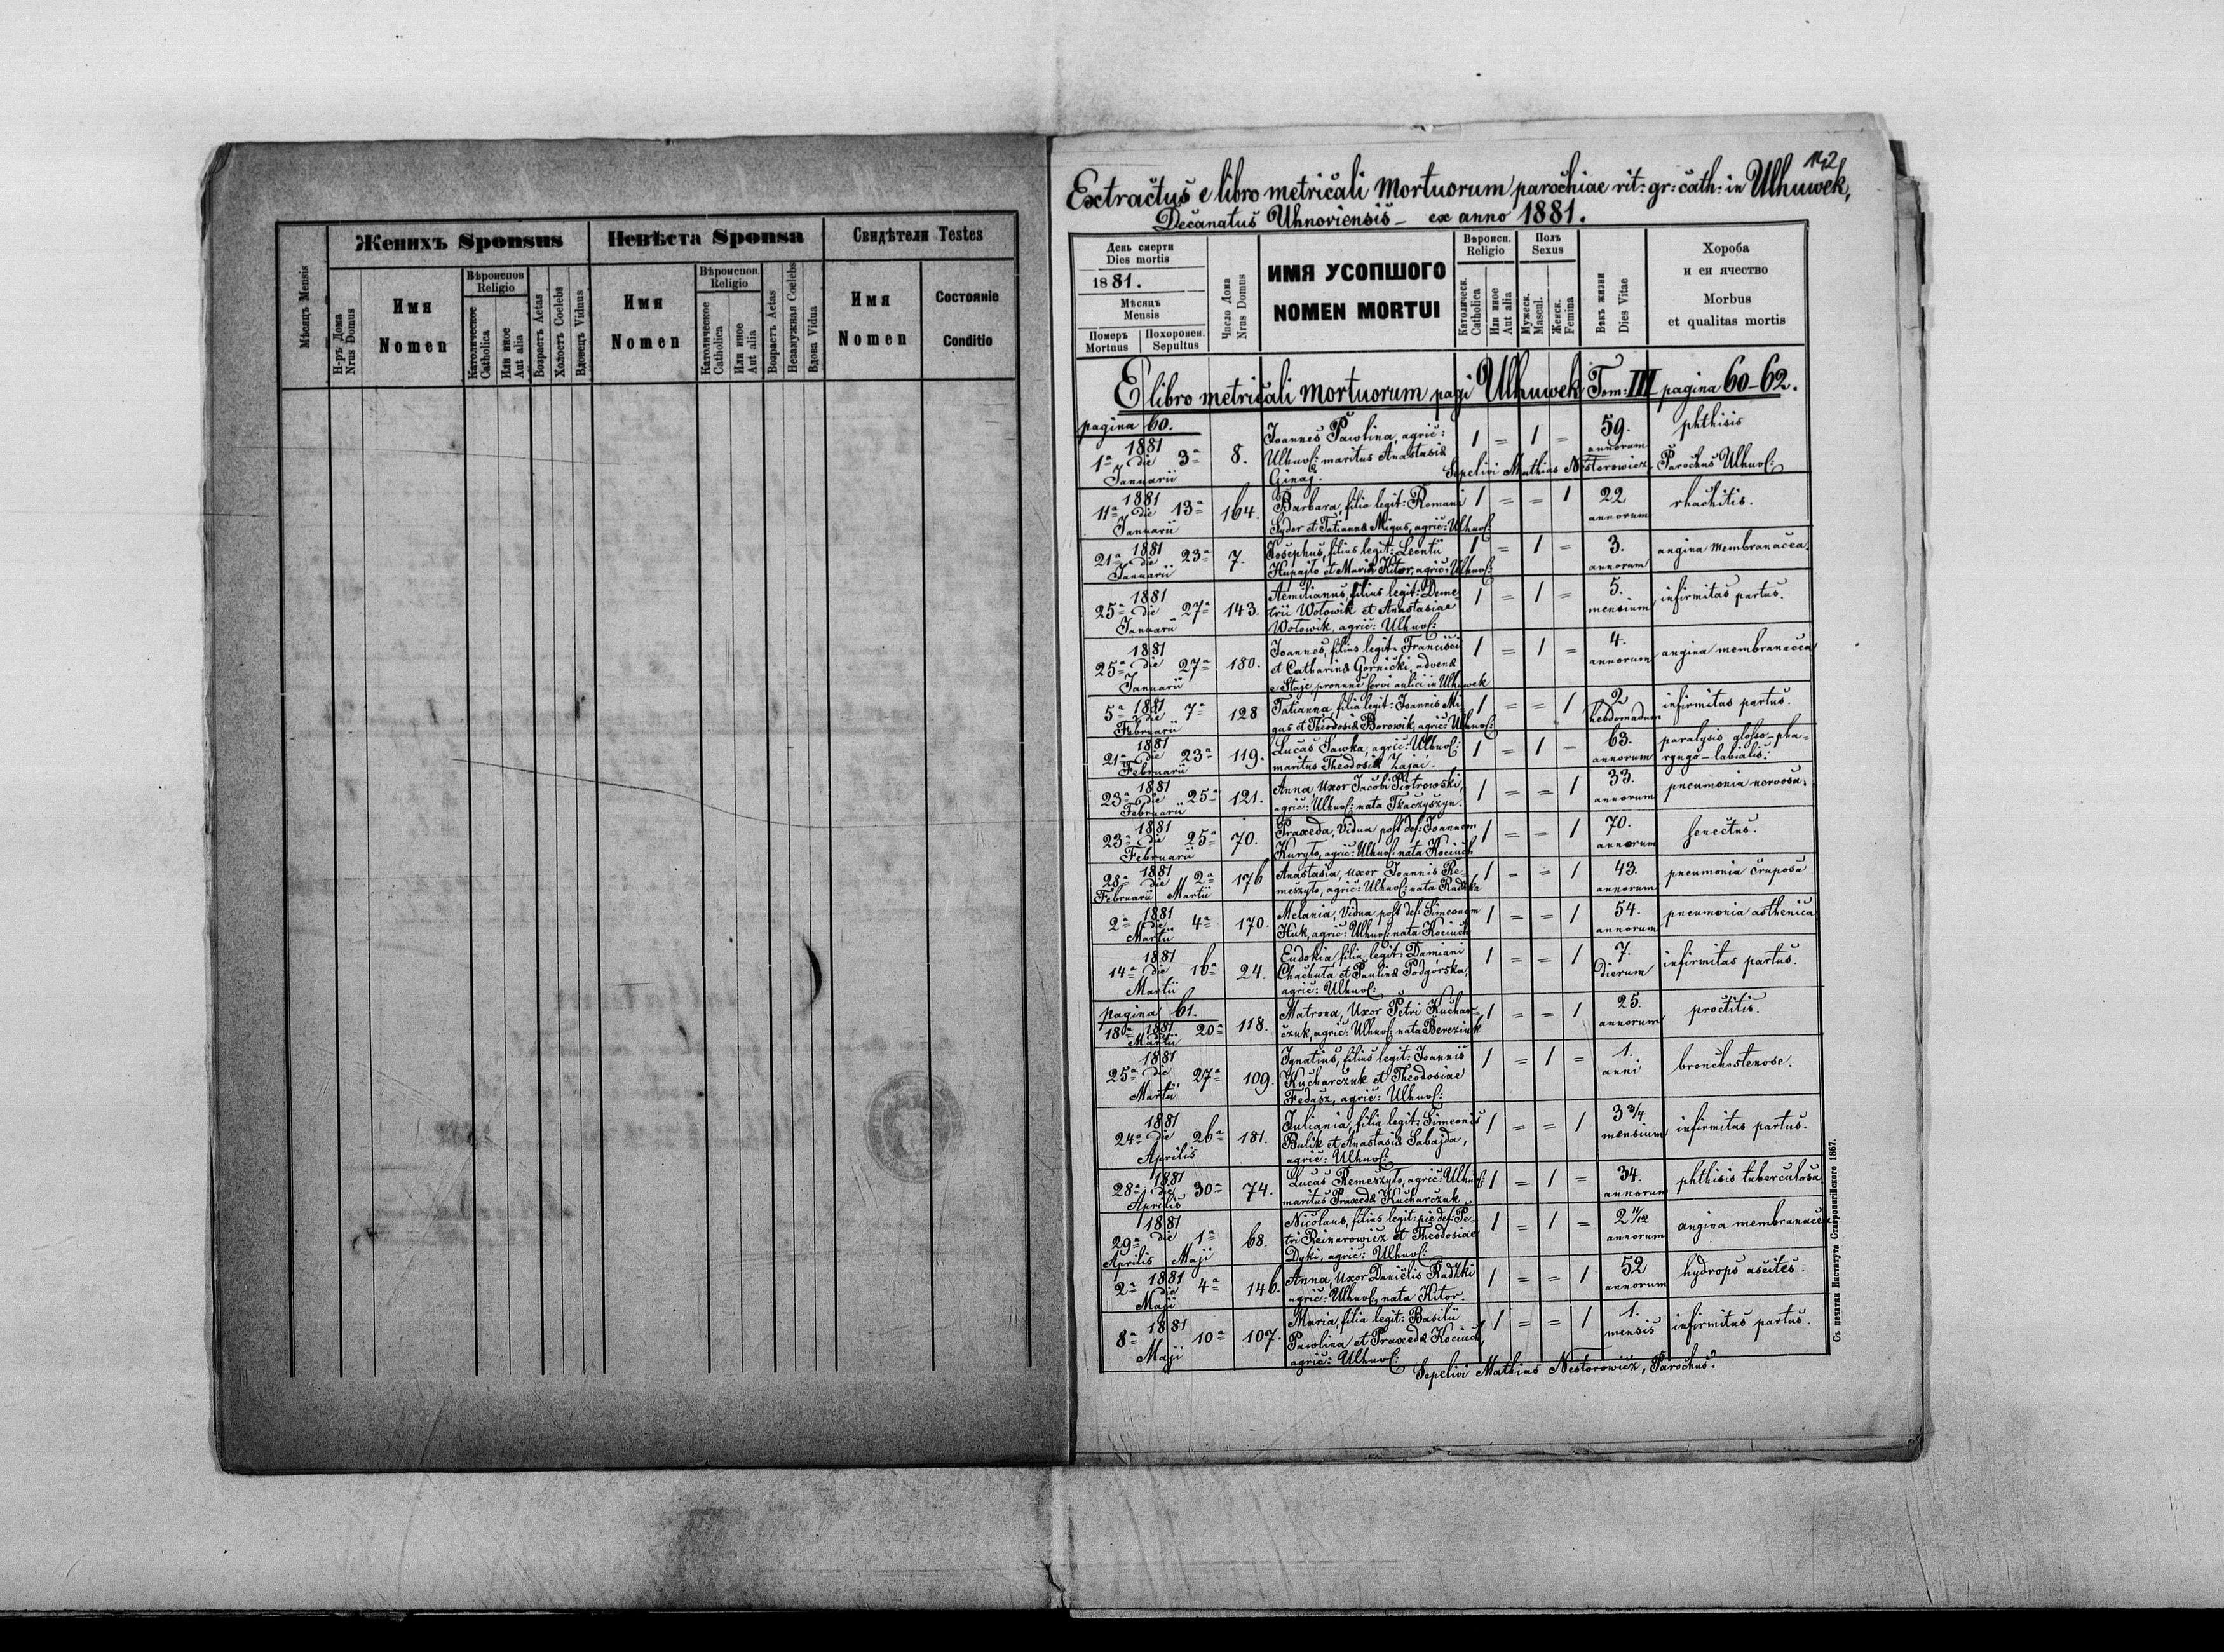 Женихъ Sponsus
Невѣста Sponsa
Свидѣтели Testes
Мѣсяцъ Mensis
Н-ръ Дома
Nrus Domus
Имя
Nomen
Вѣроиспов
Religio
Католическое
Catholica
Или иное
Aut alia
Возрастъ Aetas
Холостъ Coelebs
Вдовецъ Viduus
Имя
Nomen
Вѣроиспов.
Religio
Католическое
Catholica
Или иное
Aut alia
Возрастъ Aetas
Незамужная Coelebs
Вдова Vidua
Имя
Nomen
Состояніе
Conditio
142
Extractus e libro metricali Mortuorum parochiae rit: gr: cath: in Ulhuwek,
Decanatus Uhnoviensis — ex anno 1881.
День смерти
Dies mortis
1881.
Мѣсяцъ
Mensis
Померъ
Mortuus
Похоронен.
Sepultus
Число Дома
Nrus Domus
ИМЯ УСОПШОГО
NOMEN MORTUI
Вѣроисп.
Religio
Католическ.
Catholica
Или иное
Aut alia
Полъ
Sexus
Мужеск.
Mascul.
Женск.
Femina
Вѣкъ жизни
Dies Vitae
Хороба
и еи ячество
Morbus
et qualitas mortis
E libro metricali mortuorum pagi Ulhuwek Tom: III pagina 60–62.
pagina 60.
1881
1ª die 3ª
Januarii
8.
Joannes Pawlina, agric:
Ulhuv: maritus Anastasiæ
Ginaj.
1 = 1 =
59.
annorum
phthisis
Sepelivi Mathias Nestorowicz, Parochus Ulhuv:
1881
11ª die 13ª
Januarii
164.
Barbara, filia legit: Romani
Syder et Tatiannæ Migus, agric: Ulhuv:
1 = = 1
22
annorum
rhachitis.
1881
21ª die 23ª
Januarii
7.
Josephus, filius legit: Leontii
Hupajlo et Mariæ Kitor, agric: Ulhuv:
1 = 1 =
3.
annorum
angina membranacea.
1881
25ª die 27ª
Januarii
143.
Aemilianus, filius legit: Deme
trii Wołowik et Anastasiae
Wołowik, agric: Ulhuv:
1 = 1 =
5.
mensium
infirmitas partus.
1881
25ª die 27ª
Januarii
180.
Joannes, filius legit: Francisci
et Catharinæ Gornicki, advenæ
e Staje, pronunc servi aulici in Ulhuwek
1 = 1 =
4.
annorum
angina membranacea
1881
5ª die 7ª
Februarii
128
Tatianna, filia legit: Joannis Mi-
gus et Theodosiæ Borowik, agric: Ulhuv:
1 = = 1
2
hebdomadum
infirmitas partus.
1881
21ª die 23ª
Februarii
119.
Lucas Sawka, agric: Ulhuv:
maritus Theodosiæ Zajaí.
1 = 1 =
63.
annorum
paralysis glosso-pha-
ryngo-labialis.
1881
23ª die 25ª
Februarii
121.
Anna, Uxor Jacobi Piotrowski,
agric: Ulhuv: nata Tkaczyszyn.
1 = = 1
33.
annorum
pneumonia nervosa.
1881
23ª die 25ª
Februarii
70.
Praxeda, Vidua post def: Joannem
Kuryło, agric: Ulhuv: nata Kociuch
1 = = 1
70.
annorum
senectus.
1881
28ª die 2ª
Februarii Martii
176
Anastasia, uxor Joannis Re-
meszyło, agric: Ulhuv: nata Radzka
1 = = 1
43.
annorum
pneumonia cruposa
1881
2ª die 4ª
Martii
170.
Melania, Vidua post def: Simeonem
Huk, agric: Ulhuv: nata Kociuch
1 = = 1
54.
annorum
pneumonia asthenica
1881
14ª die 16ª
Martii
24.
Eudokia, filia legit: Damiani
Chachuta et Paulinæ Podgórska,
agric: Ulhuv:
1 = = 1
7.
Dierum
infirmitas partus.
pagina 61.
1881
18ª die 20ª
Martii
118.
Matrona, Uxor Petri Kuchar-
czuk, agric: Ulhuv: nata Bereziuk
1 = = 1
25.
annorum
proctitis.
1881
25ª die 27ª
Martii
109.
Ignatius, filius legit: Joannis
Kucharczuk et Theodosiae
Fedasz, agric: Ulhuv:
1 = 1 =
1.
anni
bronchostenose.
1881
24ª die 26ª
Aprilis
181.
Juliania, filia legit: Simeonis
Bulik et Anastasiæ Sabajda,
agric: Ulhuv:
1 = = 1
3 3/4
mensium
infirmitas partus.
1881
28ª die 30ª
Aprilis
74.
Lucas Remeszyło, agric: Ulhuv:
maritus Praxedæ Kucharczuk
1 = 1 =
34.
annorum
phthisis tuberculosa
1881
29ª die 1ª
Aprilis Maji
68.
Nicolaus, filius legit: pie def: Pe-
tri Reinarowicz et Theodosiae
Dyki, agric: Ulhuv:
1 = 1 =
2 11/12
annorum
angina membranacea
1881
2ª die 4ª
Maji
146.
Anna, Uxor Danielis Radzki
agric: Ulhuv: nata Kitor.
1 = = 1
52
annorum
hydrops ascites.
1881
8ª 10ª
Maji
107.
Maria, filia legit: Basilii
Pawlina et Praxedæ Kociuch,
agric: Ulhuv:
1 = = 1
1.
mensis
infirmitas partus.
Sepelivi Mathias Nestorowicz, Parochus.
Съ печатни Института Ставропигійского 1867.